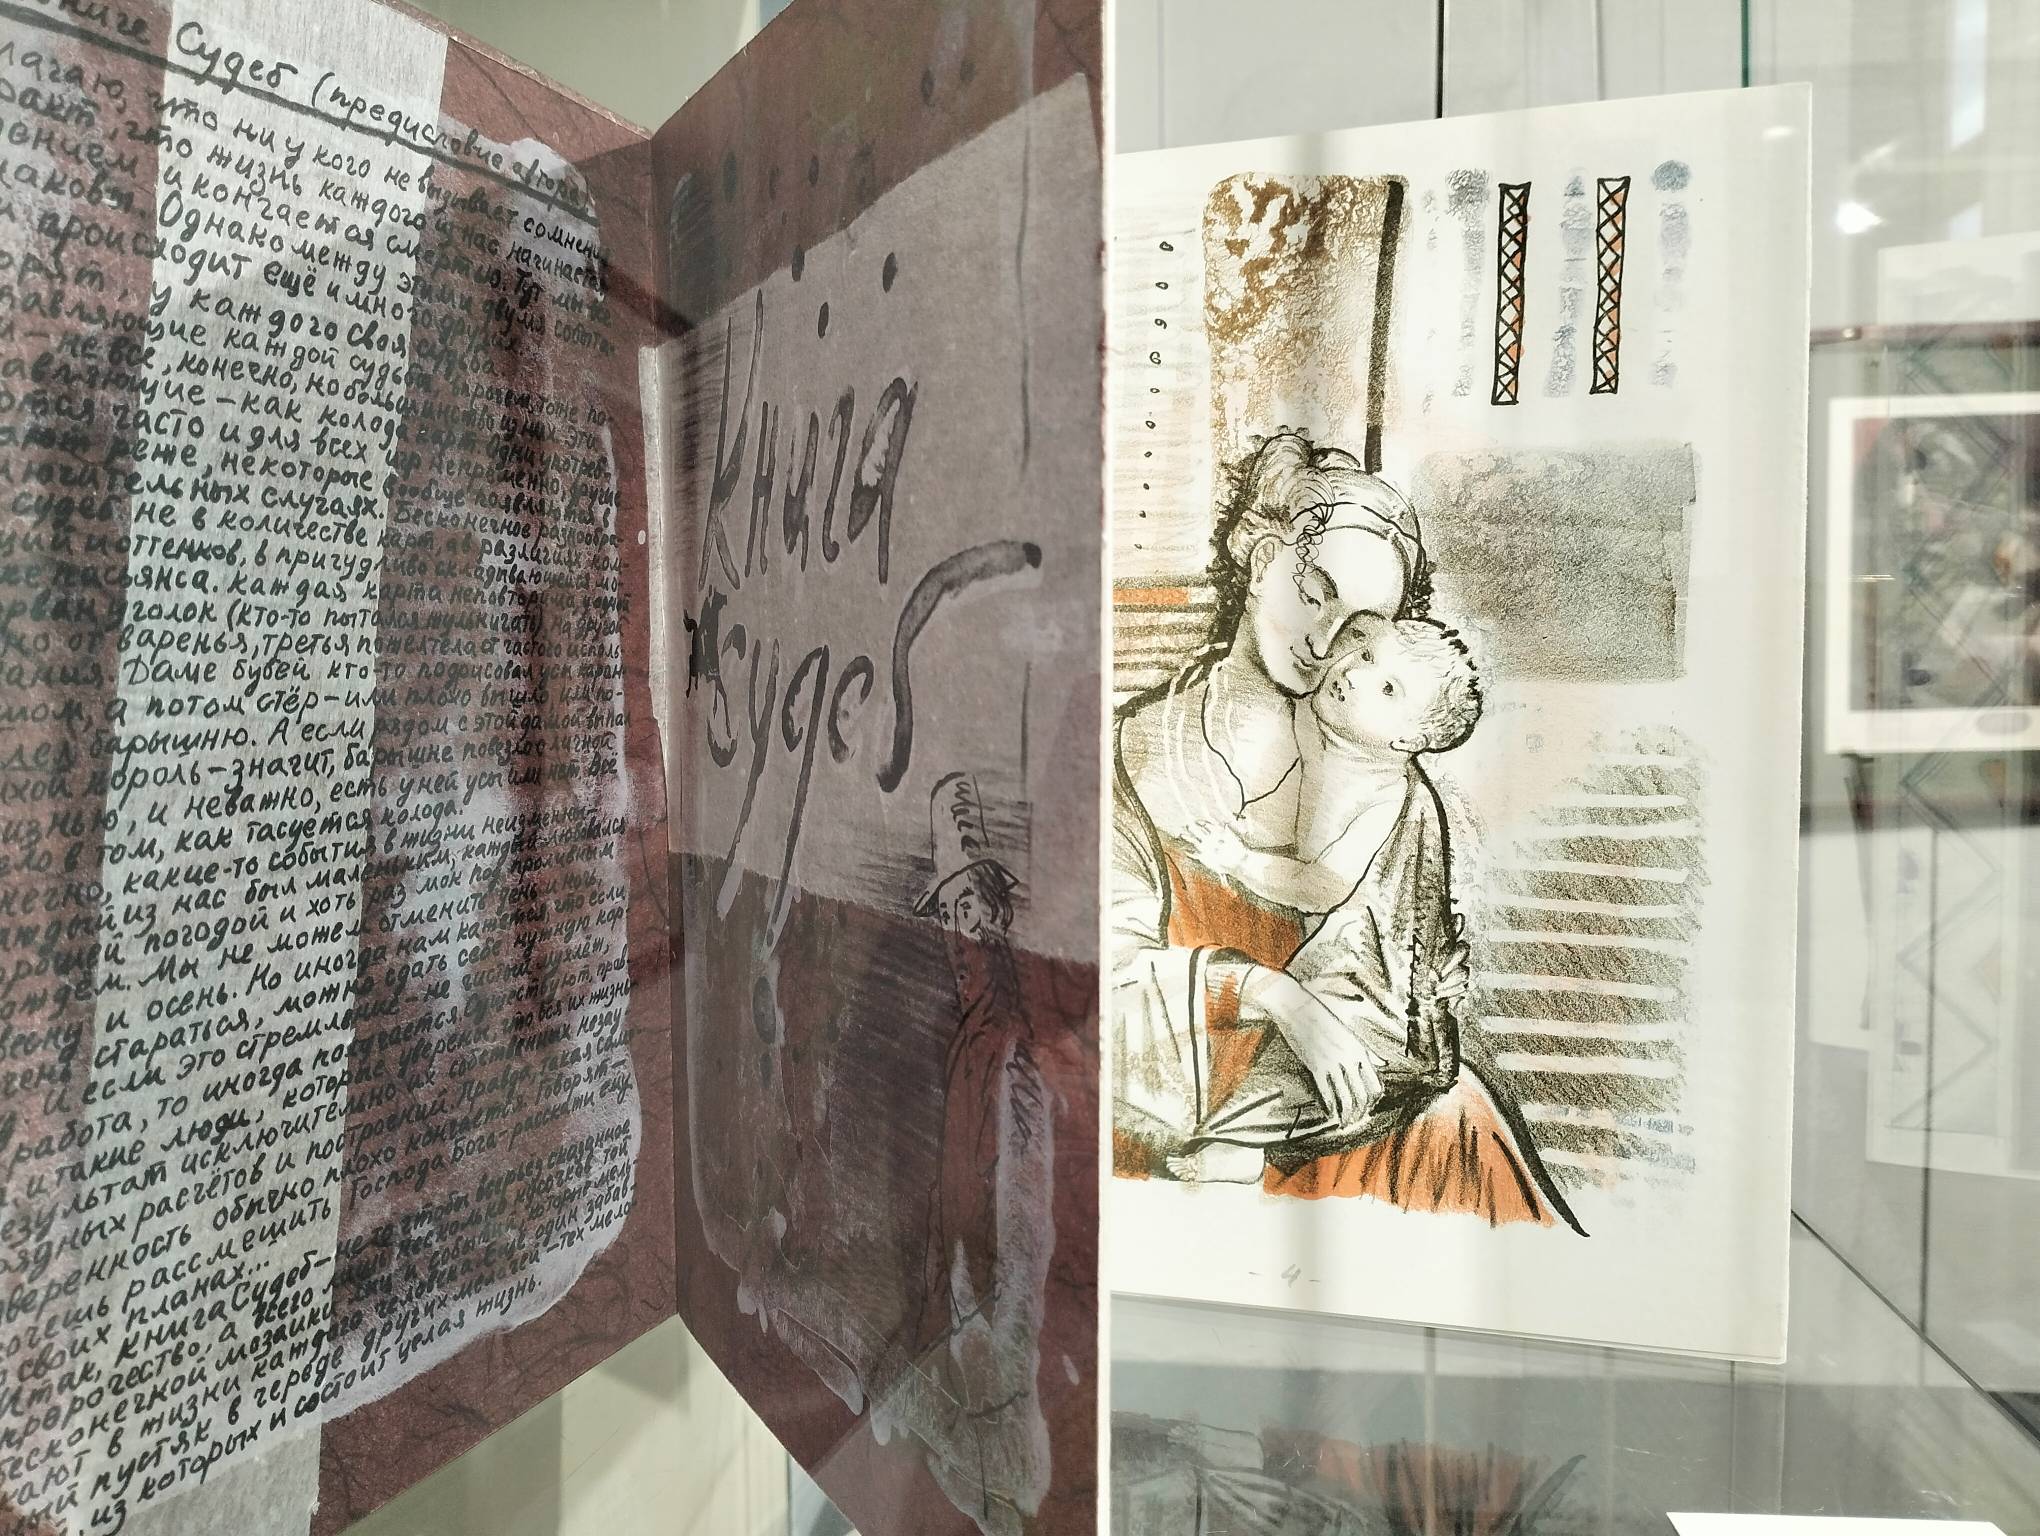 Судеб (предисловие автора)
что ни у кого не вызывает сомнения
что жизнь каждого из нас начинается
и кончается смертью. Тут мы все
Однако между этими двумя событи-
происходит ещё и много других.
у каждого своя судьба.
каждой судьбы, впрочем, тоже по-
не все, конечно, но большинство из них. Эти
как колода карт. Одни употреб-
часто и для всех игр непременно, другие
реже, некоторые вообще появляются в
случаях. Бесконечное разнообра-
судеб не в количестве карт, а в различиях ком-
оттенков, в причудливо складывающейся мо-
пасьянса. Каждая карта неповторима: у одной
уголок (кто-то пытался жульничать), на другой
от варенья, третья пожелтела от частого исполь-
Даме бубей кто-то подрисовал усы каран-
а потом стёр – или плохо вышло, или по-
барышню. А если рядом с этой дамой выпал
король – значит, барышне повезло с личной
и неважно, есть у неё усы или нет. Всё
в том, как тасуется колода.
какие-то события в жизни неизменны –
из нас был маленьким, каждый любовался
погодой и хоть раз мок под проливным
Мы не можем отменить день и ночь,
и осень. Но иногда нам кажется, что если
стараться, можно сдать себе нужную кар-
И если это стремление – не чистый мухлёж,
работа, то иногда получается. Существуют, прав-
и такие люди, которые уверены, что вся их жизнь –
результат исключительно их собственных незау-
расчётов и построений. Правда, такая само-
уверенность обычно плохо кончается. Говорят –
хочешь рассмешить Господа Бога – расскажи ему
о своих планах...
Итак, Книга Судеб – не те чтобы вперед сказанное
пророчество, а всего лишь несколько кусочков той
бесконечной мозаики и событий, которые мель-
кают в жизни каждого человека. Ещё один забав-
пустяк в череде других мелочей – тех мело-
из которых и состоит целая жизнь.
Книга
Судеб
- 4 -